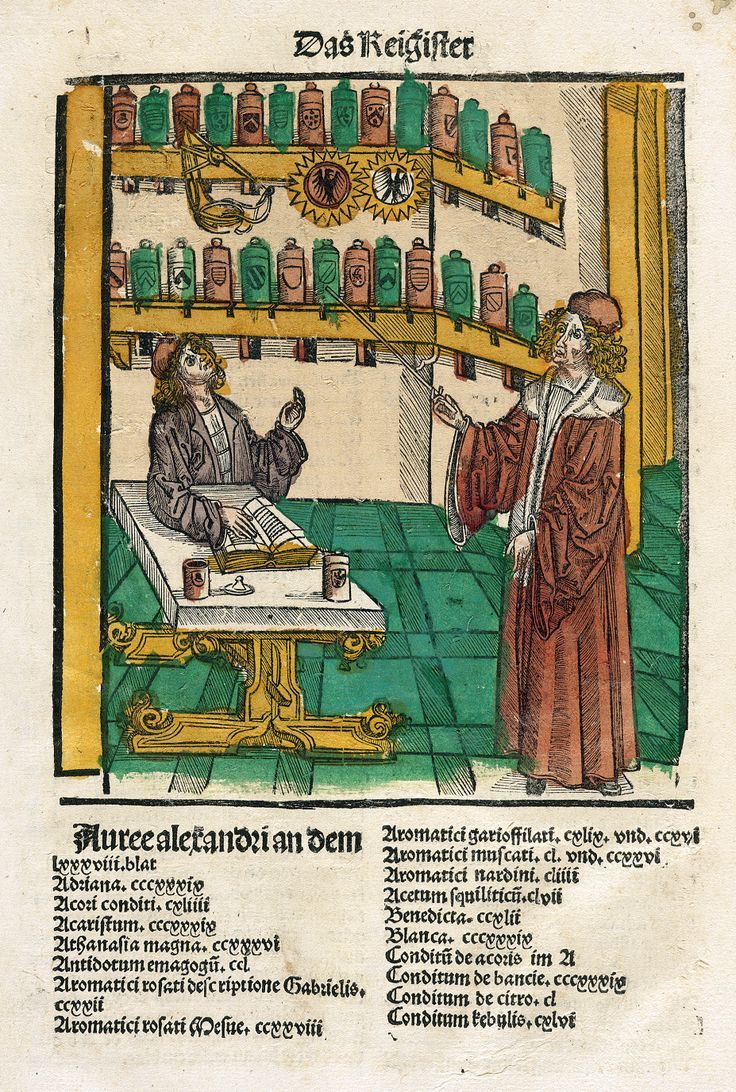 Das Reigister
Auree alexandri an dem
lxxxviii. blat
Adriana. cccxxxix
Acori conditi. cxliiii
Acaristum. cccxxxix
Athanasia magna. ccxxxvi
Antidotum emagogū. ccl
Aromatici rosati descriptione Gabrielis.
ccxxii
Aromatici rosati Mesue. ccxxviii
Aromatici garioffilati. cxlix. vnd. ccxxvi
Aromatici muscati. cl. vnd. ccxxvi
Aromatici nardini. cliiii
Acetum squiliticū. clvii
Benedicta. ccxlii
Blanca. cccxxxix
Conditū de acoris im A
Conditum de bancie. cccxxxix
Conditum de citro. cl
Conditum kebulis. cxlvi